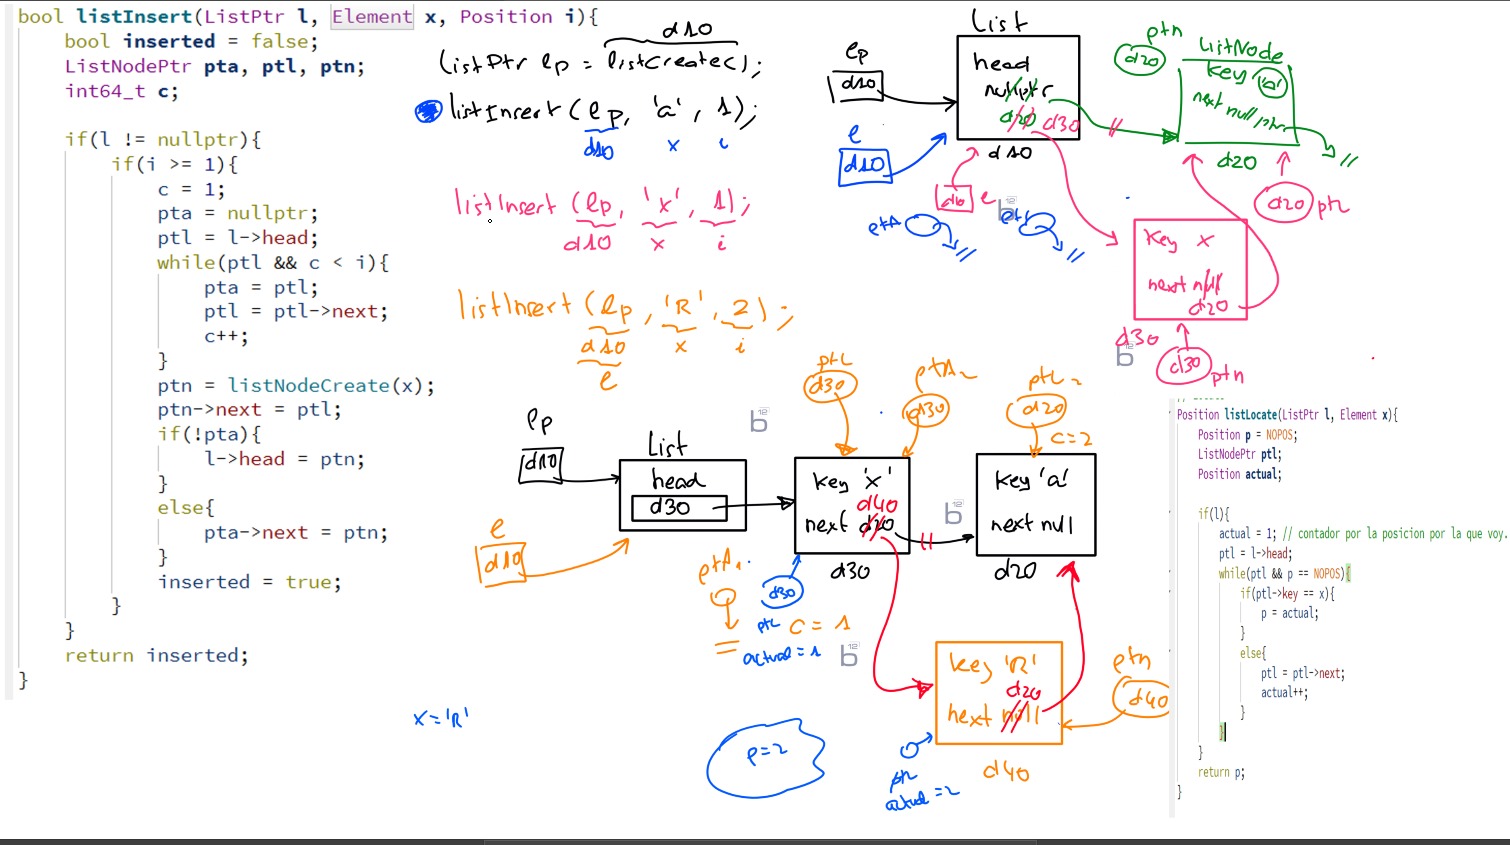 bool listInsert(ListPtr l, Element x, Position i){
bool inserted = false;
ListNodePtr pta, ptl, ptn;
int64_t c;
if(l != nullptr){
if(i >= 1){
c = 1;
pta = nullptr;
ptl = l->head;
while(ptl && c < i){
pta = ptl;
ptl = ptl->next;
c++;
}
ptn = listNodeCreate(x);
ptn->next = ptl;
if(!pta){
l->head = ptn;
}
else{
pta->next = ptn;
}
inserted = true;
}
}
return inserted;
}
d10
ListPtr lp = listCreate();
listInsert (lp, 'a', 1);
d10 x i
listInsert (lp, 'x', 1);
d10 x i
listInsert (lp, 'R', 2);
d10 x i
l
List
lp
d10
head
nullptr
d20 d30
d10
l
d10
d10 l
ptA
ptn
d20
ListNode
key 'a'
next nullptr
d20
d20 ptL
key x
next null
d20
d30
d30 ptn
lp
d10
List
head
d30
l
d10
ptL
d30
ptA2
d30
ptL2
d20
c=2
key 'x'
d40
next d20
d30
key 'a'
next null
d20
ptA1
d30
ptL c = 1
actual = 1
key 'R'
d20
next null
d40
ptn
d40
x = 'R'
p=2
ptL
actual = 2
Position listLocate(ListPtr l, Element x){
Position p = NOPOS;
ListNodePtr ptl;
Position actual;
if(l){
actual = 1; // contador por la posicion por la que voy.
ptl = l->head;
while(ptl && p == NOPOS){
if(ptl->key == x){
p = actual;
}
else{
ptl = ptl->next;
actual++;
}
}
}
return p;
}